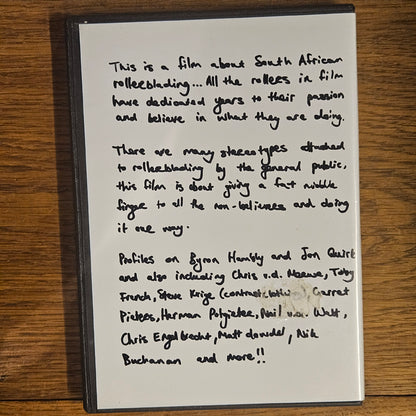 This is a film about South African
rollerblading... All the rollers in film
have dedicated years to their passion
and believe in what they are doing.
There are many stereotypes attached
to rollerblading by the general public,
this film is about giving a fat middle
finger to all the non-believers and doing
it our way.
Profiles on Byron Hambly and Jon Quirk
and also including Chris v.d. Merwe, Toby
French, Steve Krige (contrast clothing), Garret
Pieters, Herman Potgieter, Neil v.d. Walt,
Chris Engelbrecht, Matt dowdel, Nik
Buchanan and more!!